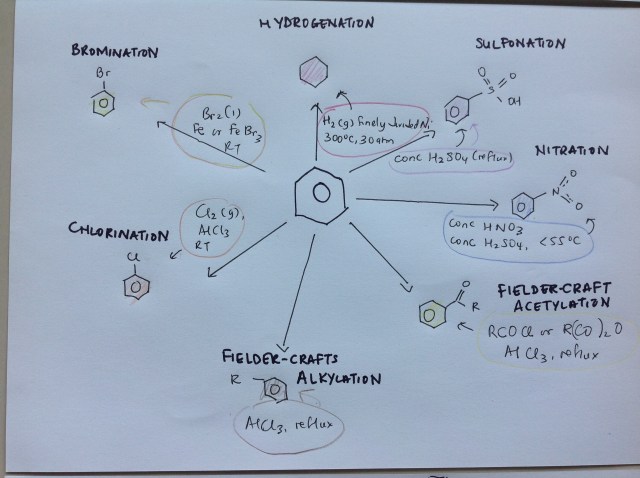 HYDROGENATION
BROMINATION
Br
Br2(l)
Fe or FeBr3
RT
H2(g) finely divided Ni
300°C, 30atm
SULFONATION
O
O
S
OH
conc H2SO4 (reflux)
NITRATION
O
N
O
conc HNO3
conc H2SO4, <55°C
CHLORINATION
Cl
Cl2(g),
AlCl3
RT
FIELDER-CRAFT
ACETYLATION
O
R
RCOCl or R(CO)2O
AlCl3, reflux
FIELDER-CRAFTS
ALKYLATION
R
AlCl3, reflux